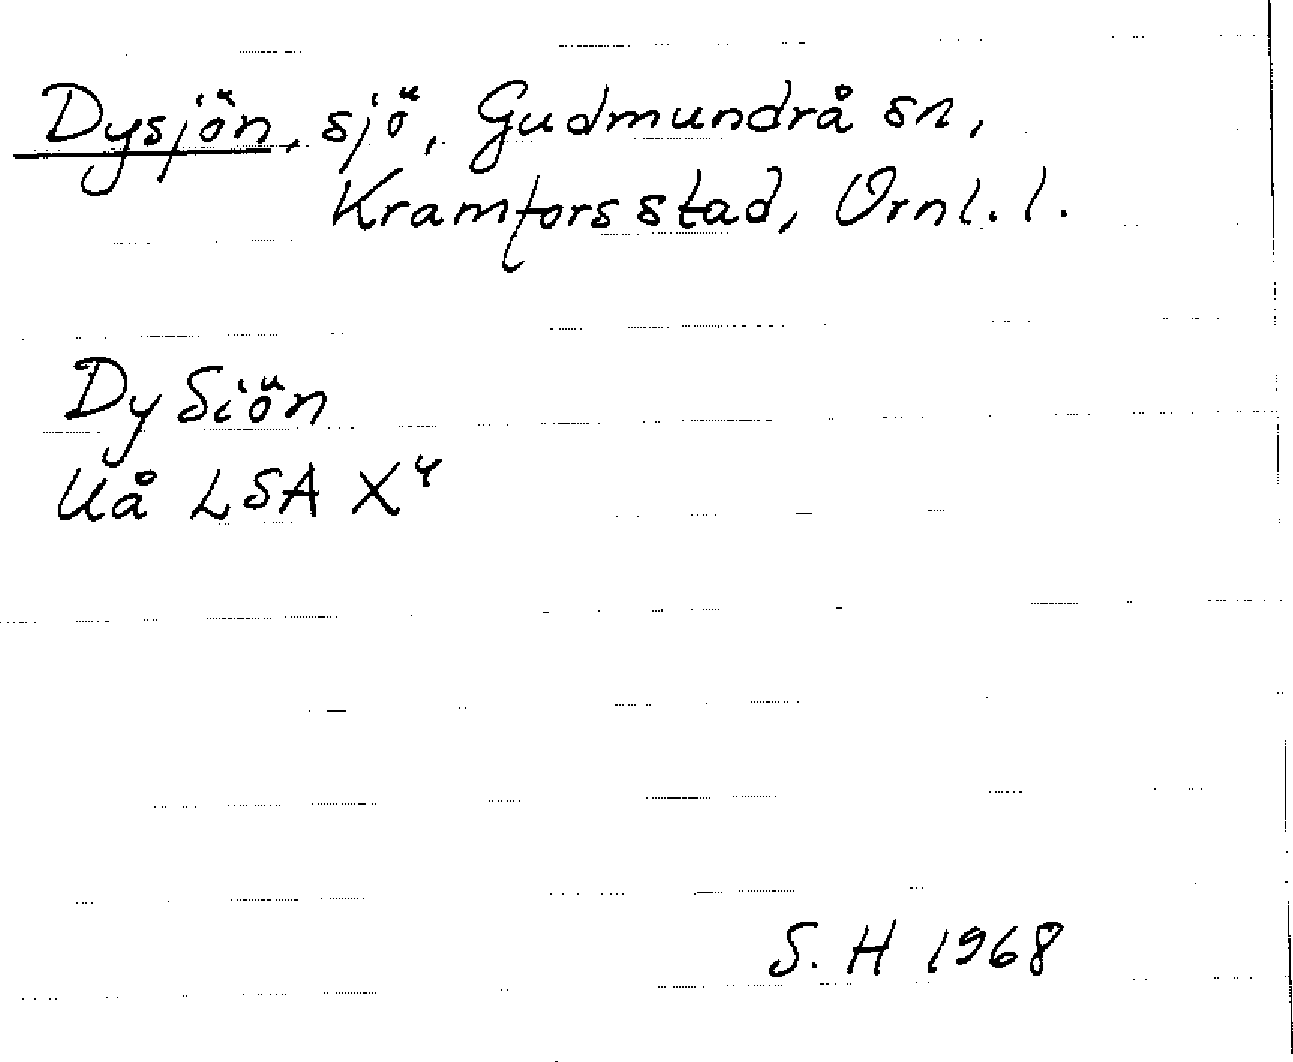 Dysjön, sjö, Gudmundrå sn,
Kramfors stad, Örnl. l.
Dy Siön
Uå LSA X4
S. H 1968